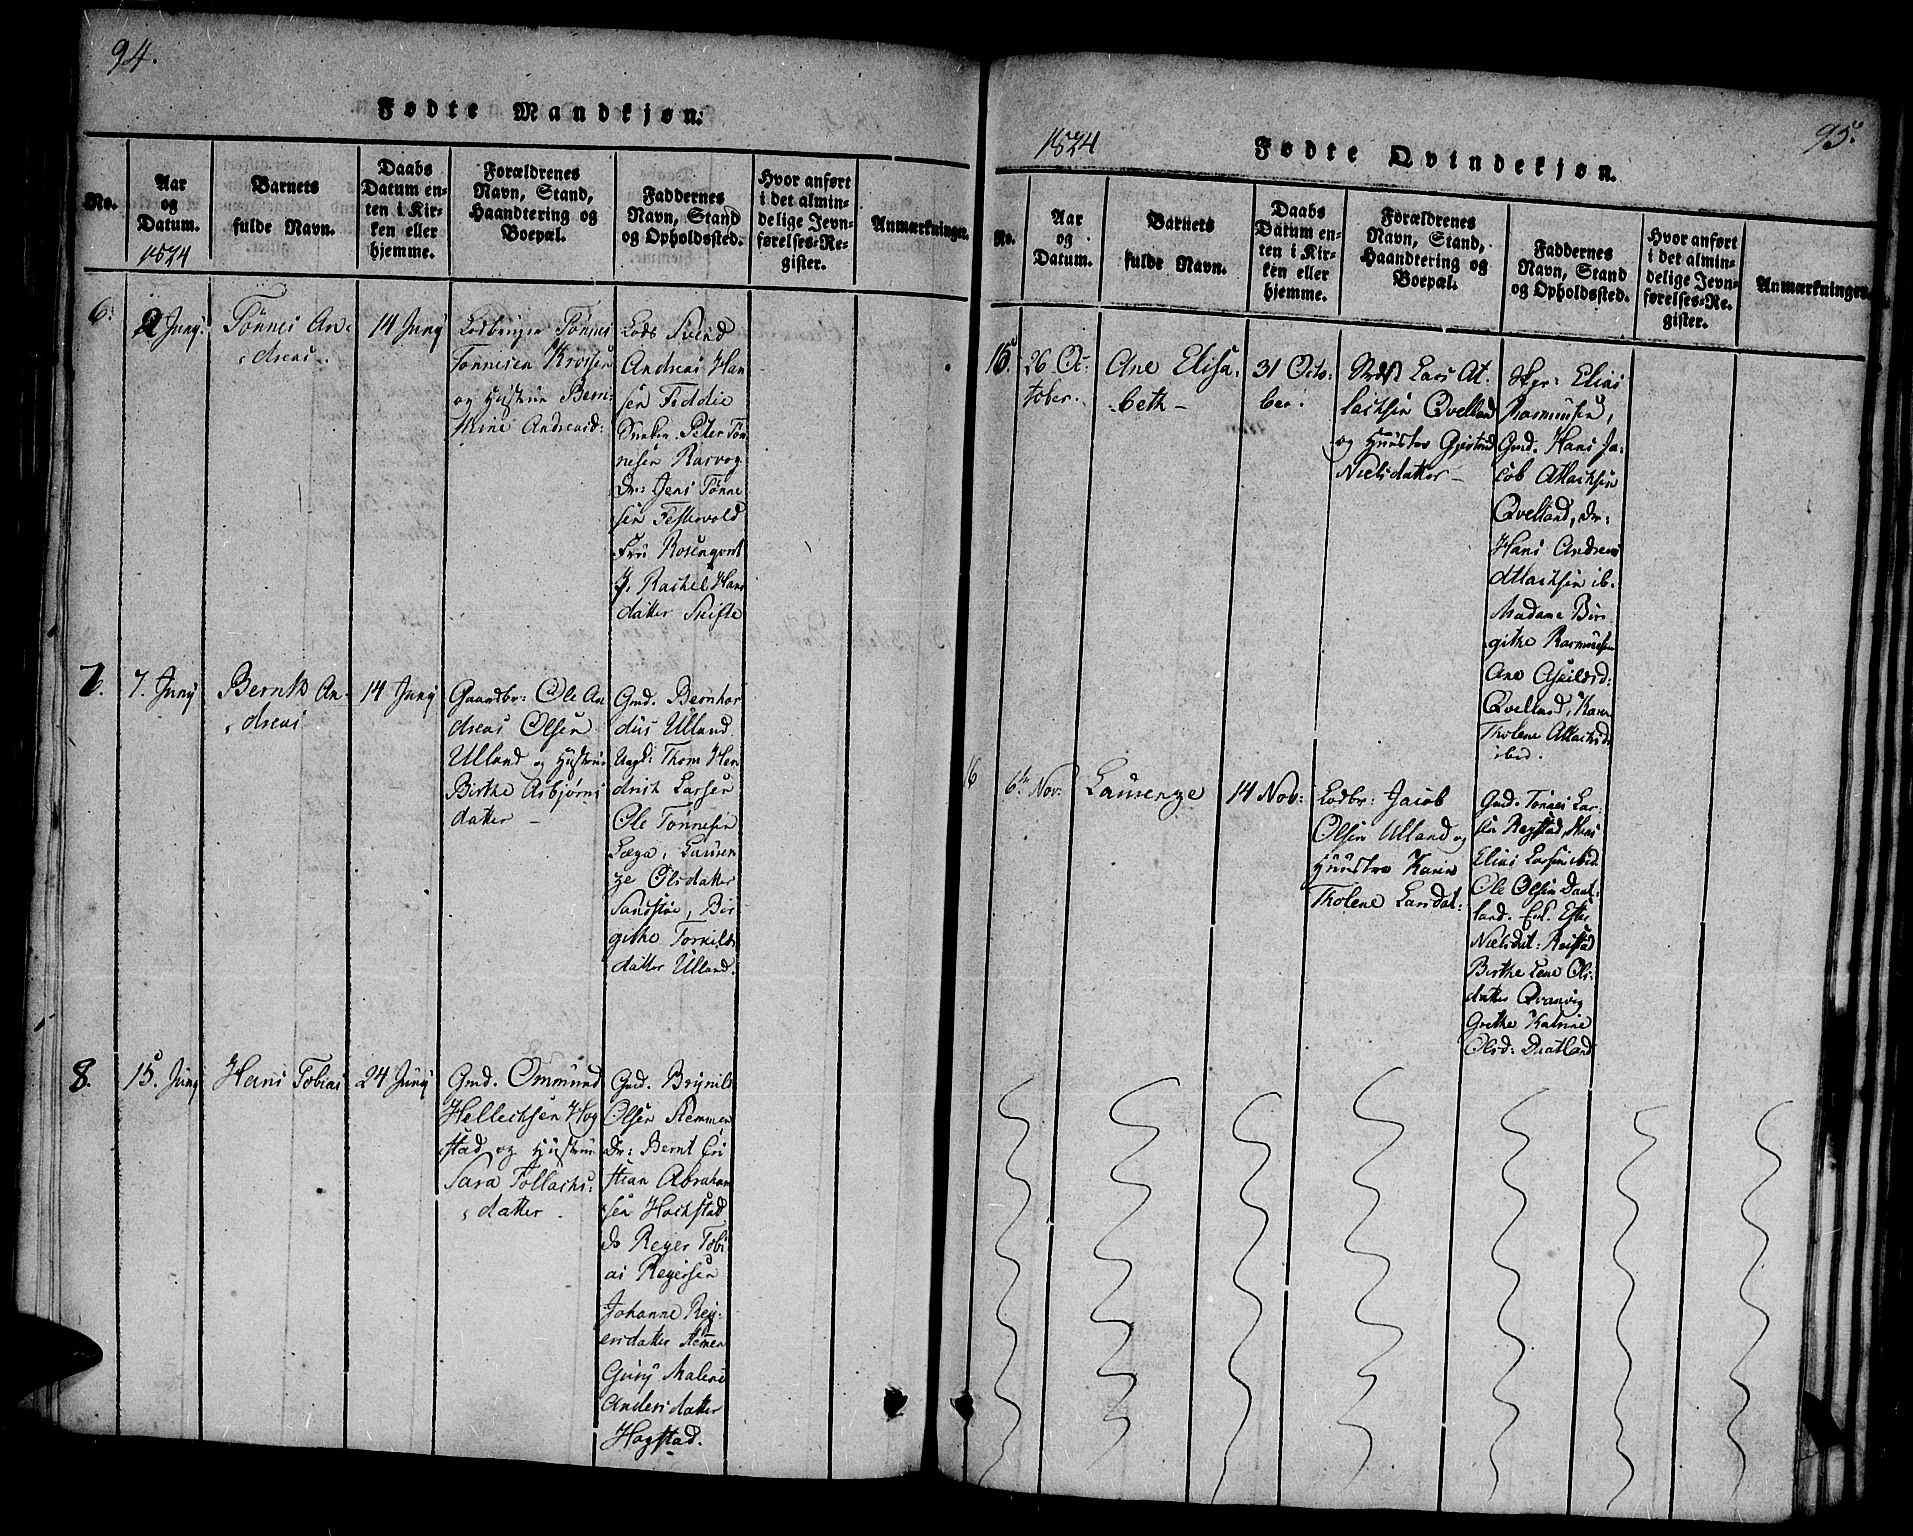 94.
Fødte Mandkjøn.
No.
Aar
og
Datum.
1824
Barnets
fulde Navn.
Daabs
Datum en-
ten i Kir-
ken eller
hjemme.
Forældrenes
Navn, Stand,
Haandtering og
Boepæl.
Faddernes
Navn, Stand
og Opholdssted.
Hvor anført
i det almin-
delige Jevn-
førelses-Re-
gister.
Anmærkninger.
6.
2 Juny.
Tönnes An-
dreas.
14 Juny
Lodbruger Tönnes
Tönnesen
og Hustrue Bern-
thine Andreasd:
Lods Svend
Andreas Han
sen Feddie
Peter Tön
nesen Rasvog
Dr: Jens Tönne
sen
Fru Rosenqvist
P. Rachel Hans
datter
7.
7. Juny
Bernt An-
dreas
14 Juny
Gaardbr: Ole An
dreas Olsen
Ulland og Hustrue
Birthe Asbjørns
datter –
Gmd. Bernhar
dus Ulland
Ungk: Thom Hen
drich Larsen
Ole Tönnesen
Læga, Lauren
ze Olsdatter
Sandstøe, Bir
githe Torkilds
datter Ulland.
8.
15. Juny
Hans Tobias
24 Juny
Gmd. Ommund
Hellechsen Hog
stad og Hustrue
Sara Tollachs:
datter.
Gmd. Brynild
Olsen Stemmen
Dr: Bernt Cri
stian Abraham
sen Hochstad
Do Reyer Tobi
as Reyersen
Johanne Rey-
ersdatter Stemen
Gury Malene
Andersdatter
Hogstad.
1824
Fødte Qvindekjøn.
95.
No.
Aar
og
Datum.
Barnets
fulde Navn.
Daabs
Datum en-
ten i Kir-
ken eller
hjemme.
Forældrenes
Navn, Stand,
Haandtering og
Boepæl.
Faddernes
Navn, Stand
og Opholdssted.
Hvor anført
i det almin-
delige Jevn-
førelses-Re-
gister.
Anmærkninger.
15.
26 Oc-
tober.
Ane Elisa-
beth –
31 Octo-
ber.
Lars At-
lachsen Qvelland
og Huustro
Nielsdatter –
Skpr: Elias
Rasmusen,
Gmd. Hans Ja-
cob Atlachsen
Qvelland, Dr:
Hans Andreas
Atlachsen ib.
Madame Bir
githe Rasmusen
Ane Askildsd:
Qvelland, Karen
Tholene Atlachsd:
ibid.
16
6te Nov:
Laurenze
14 Nov:
Lodbr: Jacob
Olsen Ulland og
Huustro Karen
Tholene Larsdat:
Gmd. Tönnes Lar-
sen Regstad, Hans
Elias Larsen ibid
Ole Olsen Daat-
land. Enk. Esther
Nielsdat: Reistad
Birthe Lene Ols-
datter Qvanvig
Grethe Katrine
Olsd: Daatland